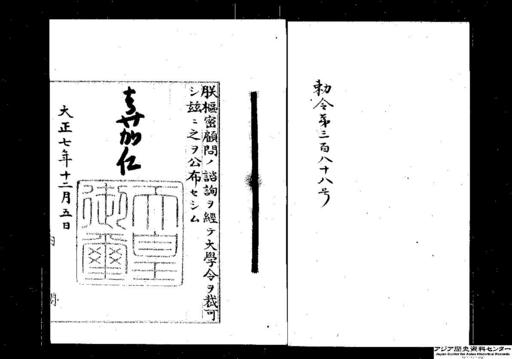 勅令第三百八十八号
朕樞密顧問ノ諮詢ヲ經テ大學令ヲ裁可
シ茲ニ之ヲ公布セシム
嘉仁
天皇
御璽
大正七年十二月五日
内
閣
アジア歴史資料センター
Japan Center for Asian Historical Records